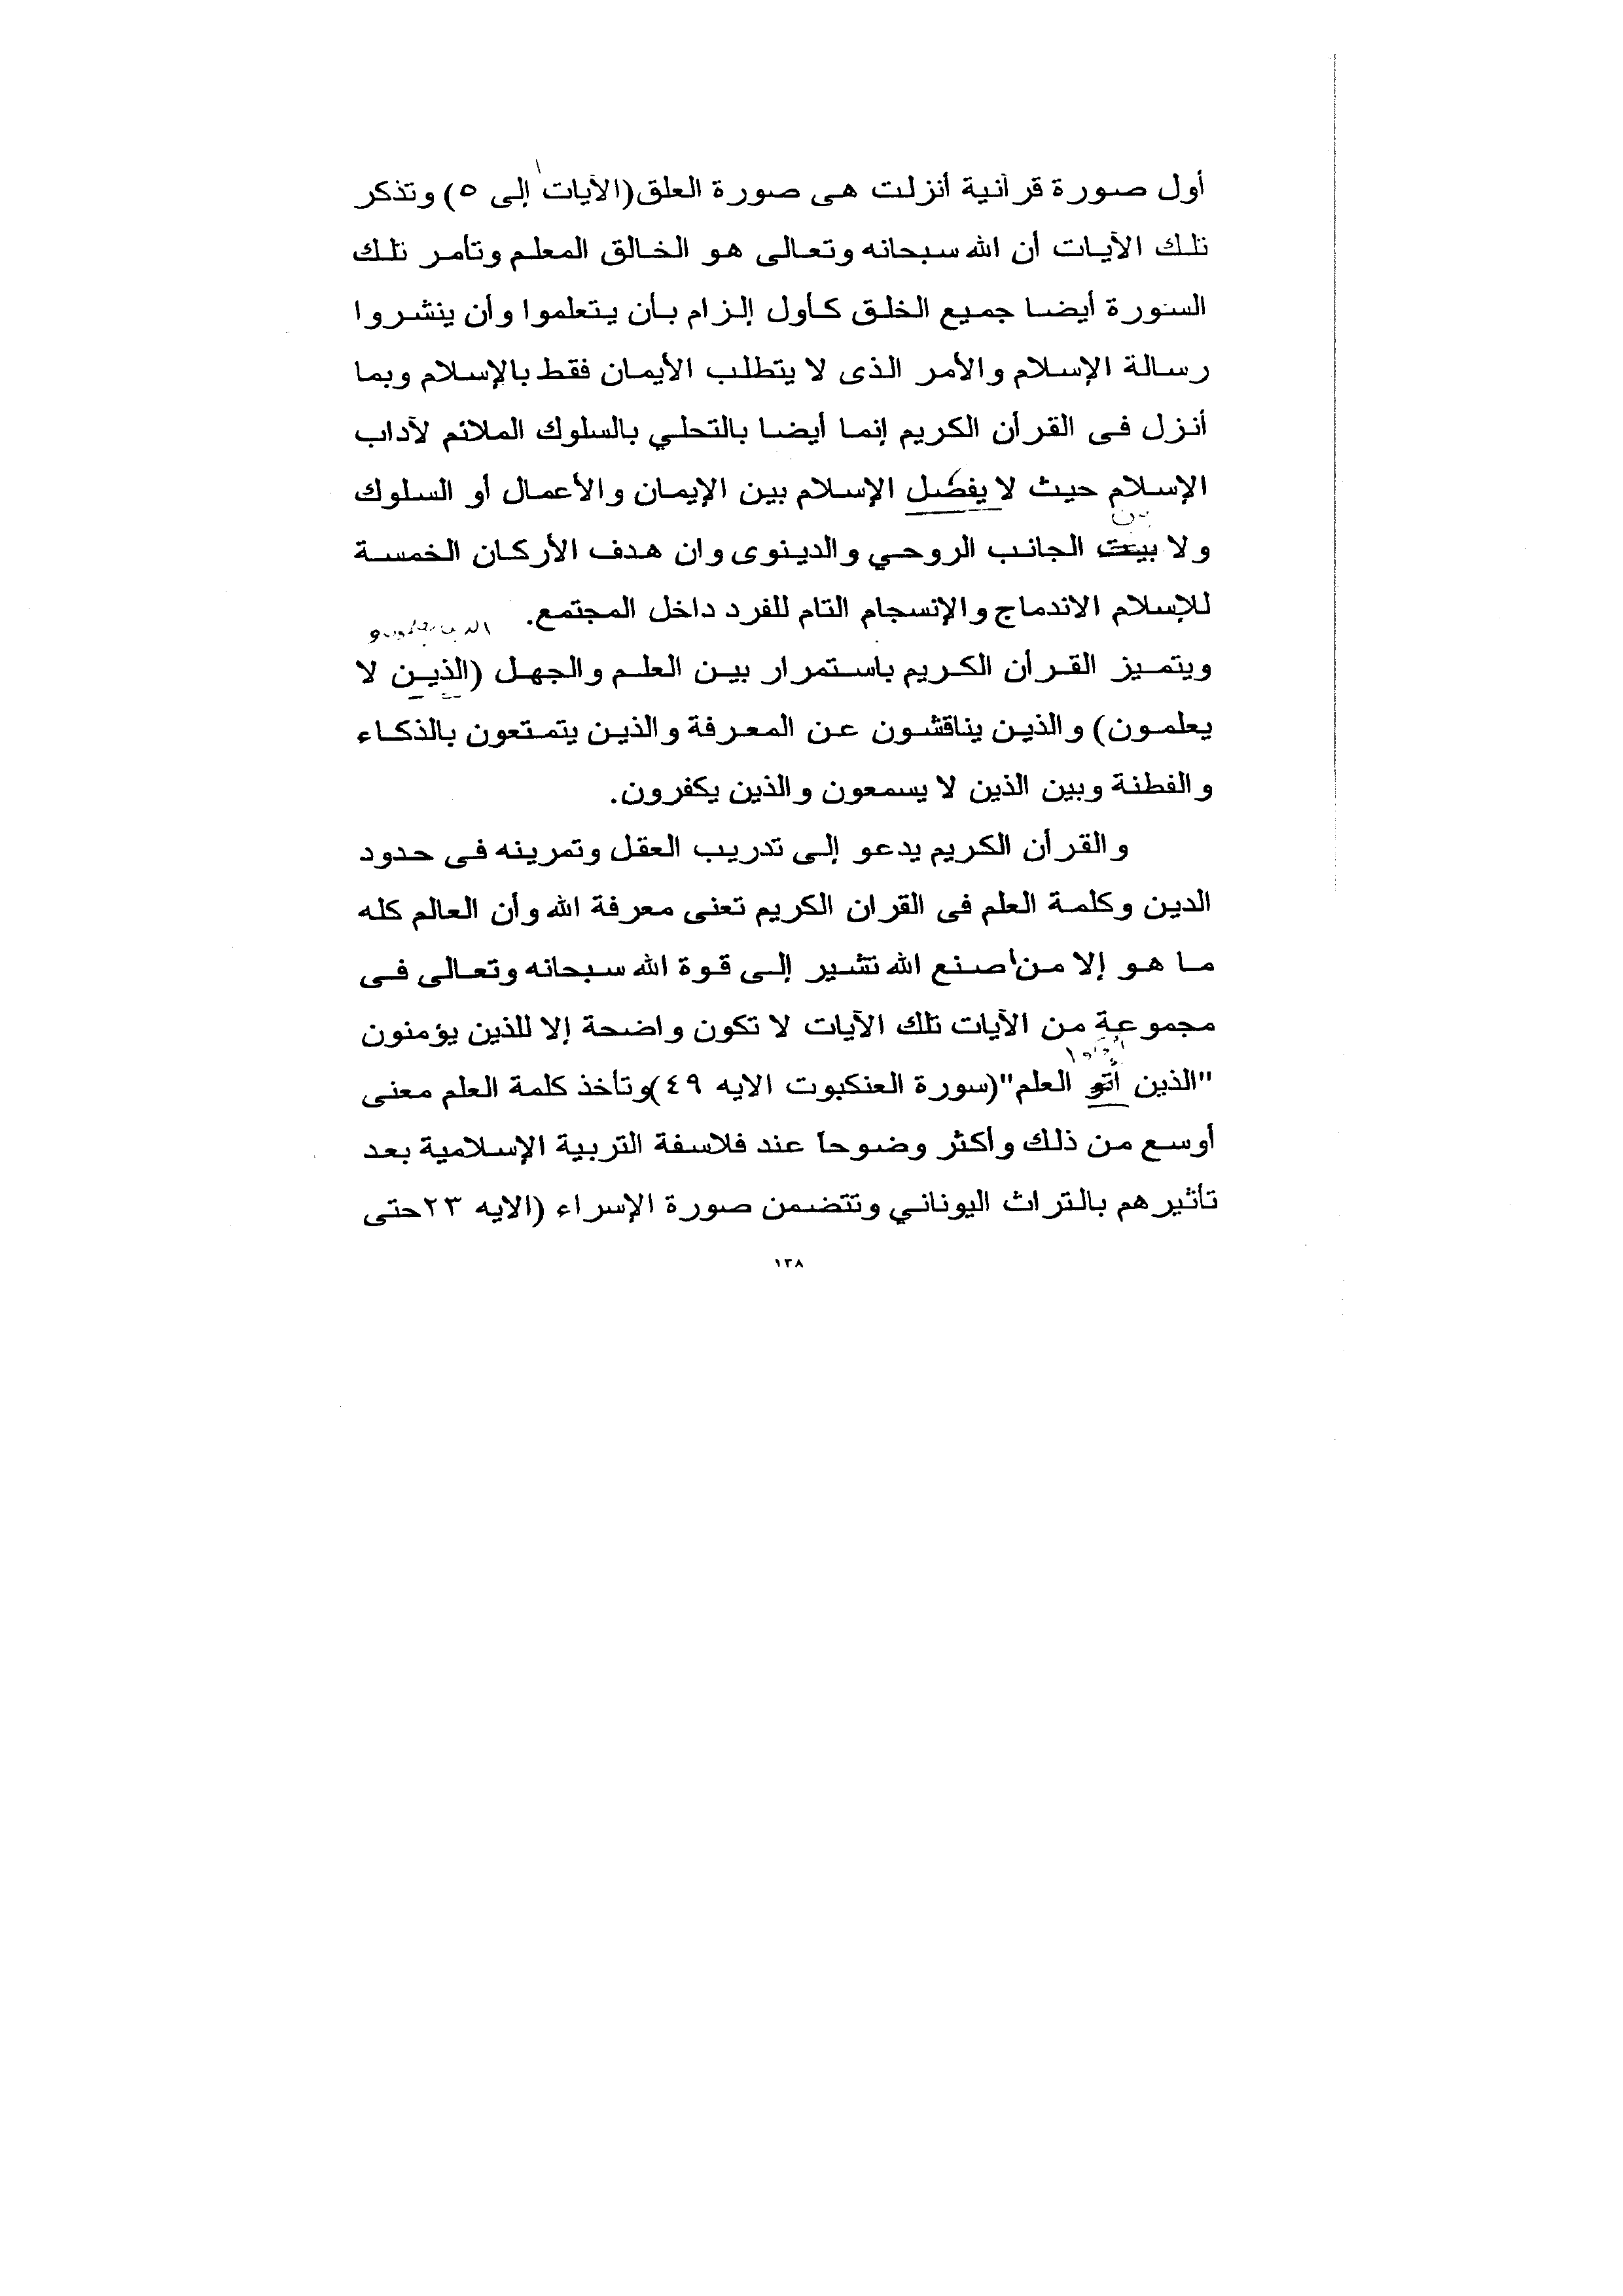 أول صورة قرآنية أنزلت هى صورة العلق(الآيات ١ إلى ٥) وتذكر
تلك الآيات أن الله سبحانه وتعالى هو الخالق المعلم وتأمر تلك
السورة أيضا جميع الخلق كأول إلزام بأن يتعلموا وأن ينشروا
رسالة الإسلام والأمر الذى لا يتطلب الأيمان فقط بالإسلام وبما
أنزل فى القرأن الكريم إنما أيضا بالتحلي بالسلوك الملائم لآداب
الإسلام حيث لا يفصل الإسلام بين الإيمان والأعمال أو السلوك
ين
ولا بيت الجانب الروحي والدينوى وان هدف الأركان الخمسة
للإسلام الاندماج والإنسجام التام للفرد داخل المجتمع.
الذين يعلمون و
ويتميز القرأن الكريم باستمرار بين العلم والجهل (الذين لا
يعلمون) والذين يناقشون عن المعرفة والذين يتمتعون بالذكاء
والفطنة وبين الذين لا يسمعون والذين يكفرون.
والقرأن الكريم يدعو إلى تدريب العقل وتمرينه فى حدود
الدين وكلمة العلم فى القران الكريم تعنى معرفة الله وأن العالم كله
ما هو إلا من صنع الله تشير إلى قوة الله سبحانه وتعالى فى
مجموعة من الآيات تلك الآيات لا تكون واضحة إلا للذين يؤمنون
أوتوا
"الذين أتو العلم"(سورة العنكبوت الايه ٤٩)وتأخذ كلمة العلم معنى
أوسع من ذلك وأكثر وضوحاً عند فلاسفة التربية الإسلامية بعد
تأثيرهم بالتراث اليوناني وتتضمن صورة الإسراء (الايه ٢٣حتى
١٣٨